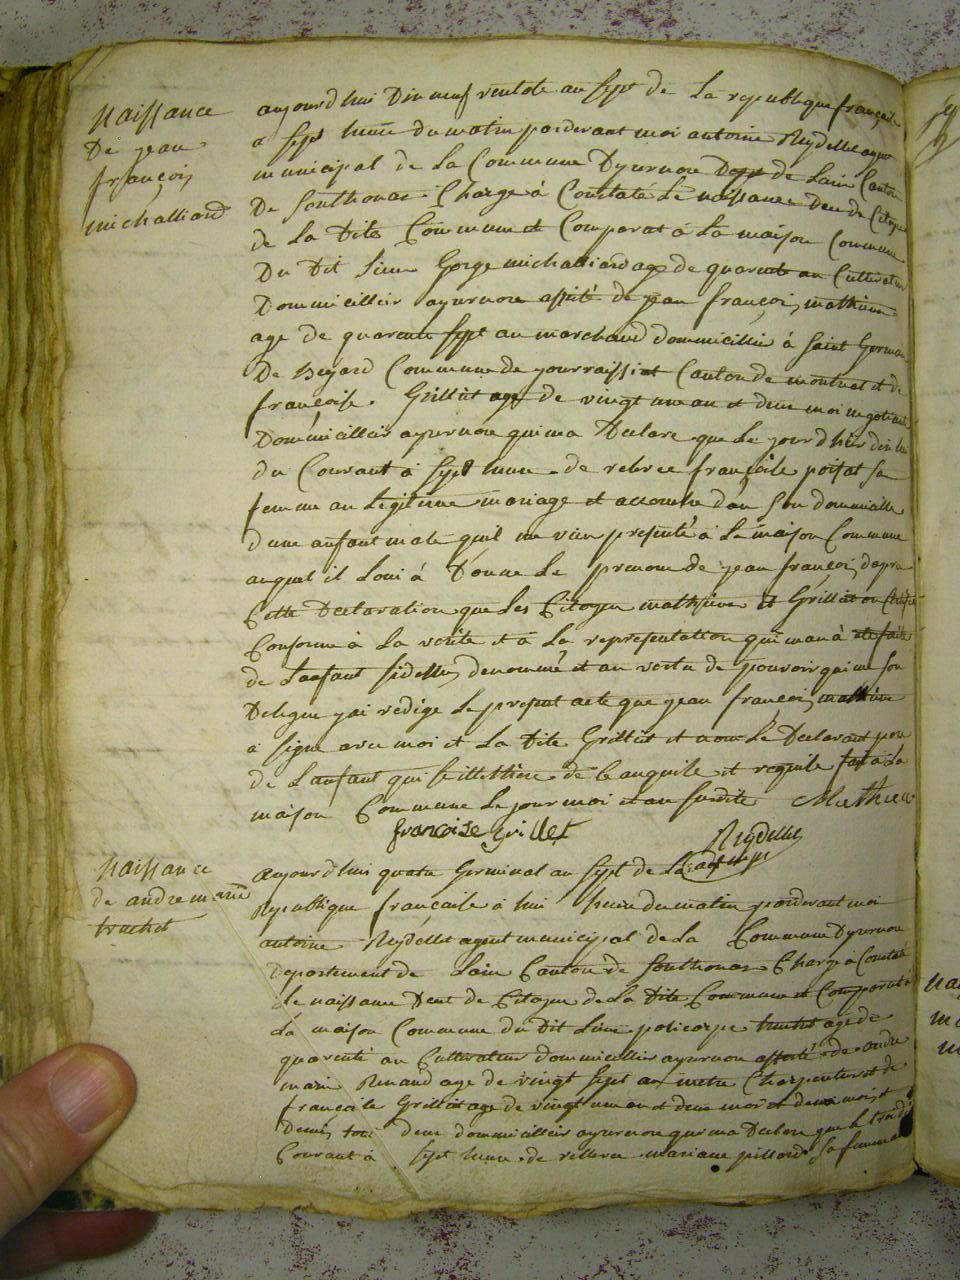 Naissance
De jean
françois
michalliard
aujourd'hui Dix neuf ventose an sept de La republique françoise
a sept heure du matin pardevant moi antoine Reydellet agent
municipal de La Commune Dyzernore Dept de Lain Canton
De Sonthonax Chargé à Constaté Le naissance Deu de Citoyen
de La Dite Commune et Comparat à La maison Commune
Du Dit Lieu George michalliard age de quarente an Cultivateur
Dommicillier ayzernore assité de jean françois mathieu
age de quarente sept an marchand dommicillié à Saint Germain
De Commune de et Canton de et de
françoise Grillêt age de vingt une an et deux moi negotiant
Dommicillier ayzernore qui ma Declare que Le jour d'hier dix huit
du Courant à sept heure de relevee françoise poisat sa
femme au Legitime mariage et accouche dan son dommicille
dune anfant male quil me vien presenté à La maison Commune
auquel il Loui à Donne Le prenom de jean françois dapre
Cette Declaration que Les Citoyen mathieu et Grillêt on Certifie
Conforme à La verite et à La representation qui man à ete faite
de Lanfant sidessus denommé et an vertu de pouvoir qui me son
Delegue jai redige Le present acte que jean françois mathieu
a signe avec moi et La Dite Grillêt et non Le Declarant pere
de Lanfant qui illettere de Lanquile et requile fait à La
maison Commune Le jour moi et an susdite Mathieu
françoise Grillet
Reydellet
agt mpl
Naissance
de andre marie
truchet
Aujourdhui quatre Germinal an sept de La
Republique françoise à hui heure du matin pardevant moi
antoine Reydellet agent municipal de La Commune Dyzernore
Departement de Lain Canton de Sonthonax Chargé à Constaté
Le naissance Deut de Citoyen de La Dite Commune et Comparat à
La maison Commune du Dit Lieu policarpe truchet agé de
quarente an Cultivateur dommicillier ayzernore assité de andre
marie Renaud age de vingt sept an metre Charpentier et de
françoise Grillêt age de vingt une an et deux moi et deux moi et
Demis tou deux dommicillier ayzernore qui ma Declare que Le
Courant à sept heure de rellevee mariane pillard sa femme